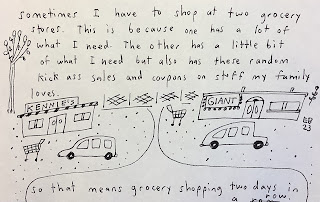 sometimes I have to shop at two grocery
stores. This is because one has a lot of
what I need. The other has a little bit
of what I need but also has these random
kick ass sales and coupons on stuff my family
loves.
KENNIE'S
GIANT
EB
23
so that means grocery shopping two days in
a row
now